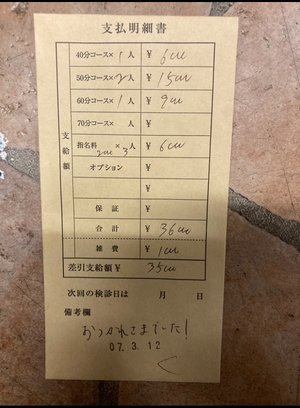 支払明細書
支給額
40分コース× 1 人 ¥ 6000
50分コース× 2 人 ¥ 15000
60分コース× 1 人 ¥ 9000
70分コース× 人 ¥
指名料 2000 × 3 人 ¥ 6000
オプション ¥
¥
保証 ¥
合計 ¥ 36000
雑費 ¥ 1000
差引支給額 ¥ 35000
次回の検診日は 月 日
備考欄
おつかれさまでした!
07.3.12